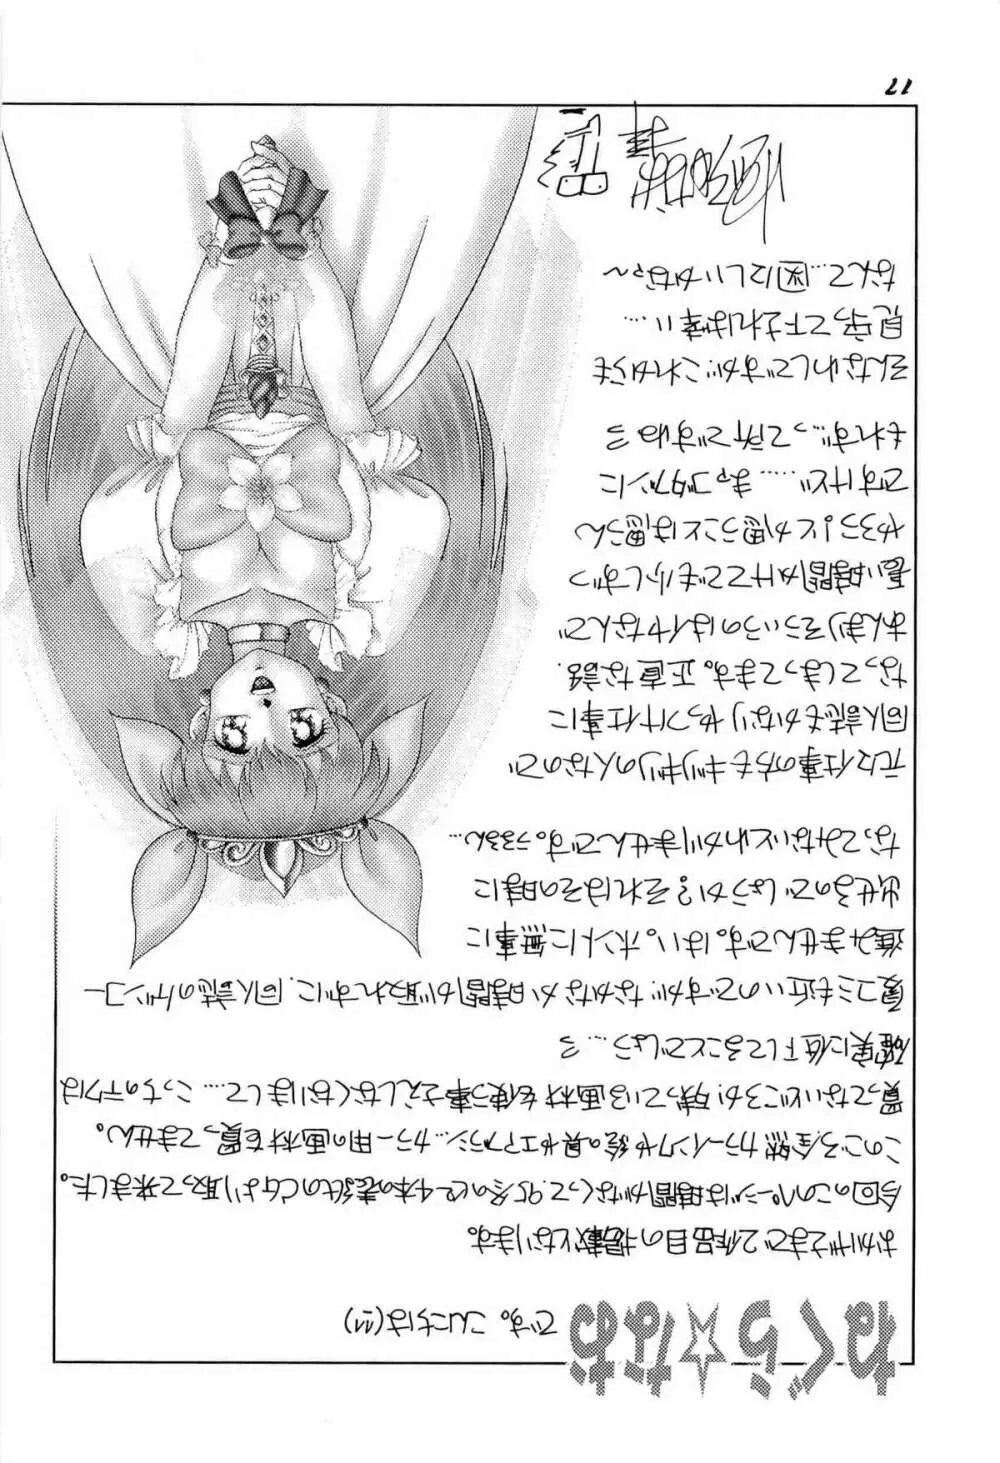 ねくら☆なお です。こんにちは(^^)
おかげさまで2作品目の掲載となります。
今回のこのページは時間がなくって、'95冬のC-4本の表紙のCGより取って来ました。
このごろ全然カラーインクや絵の具やエアブラシ…カラー用の画材を買ってません。
買ってないどころか、残っている画材を使う事さえしなくなりまして……こっちのテクは
確実に低下してることでしょう…ヨ
夏コミも近いのですが、なかなか時間が取れずに、同人誌のゲンコー
進みませんです。はい。ホントに無事に
出せるのでしょうか？それはその時に
なってみないとわかりませんです。うるるん…
元々仕事の方もギリギリの人なので
同人誌もかなりやっつけ仕事に
なってしまってます。正直な話、
あんまりそういうのはイヤなんで
長い時間かけてでも少しずつ
やろう！とか思うことは思うん
ですけど……まァゴタブンに
もれず…って所ですねヨ
そんなわしですが、これからも
見守って下されば幸い…
なんて図にしいかなァ〜
17